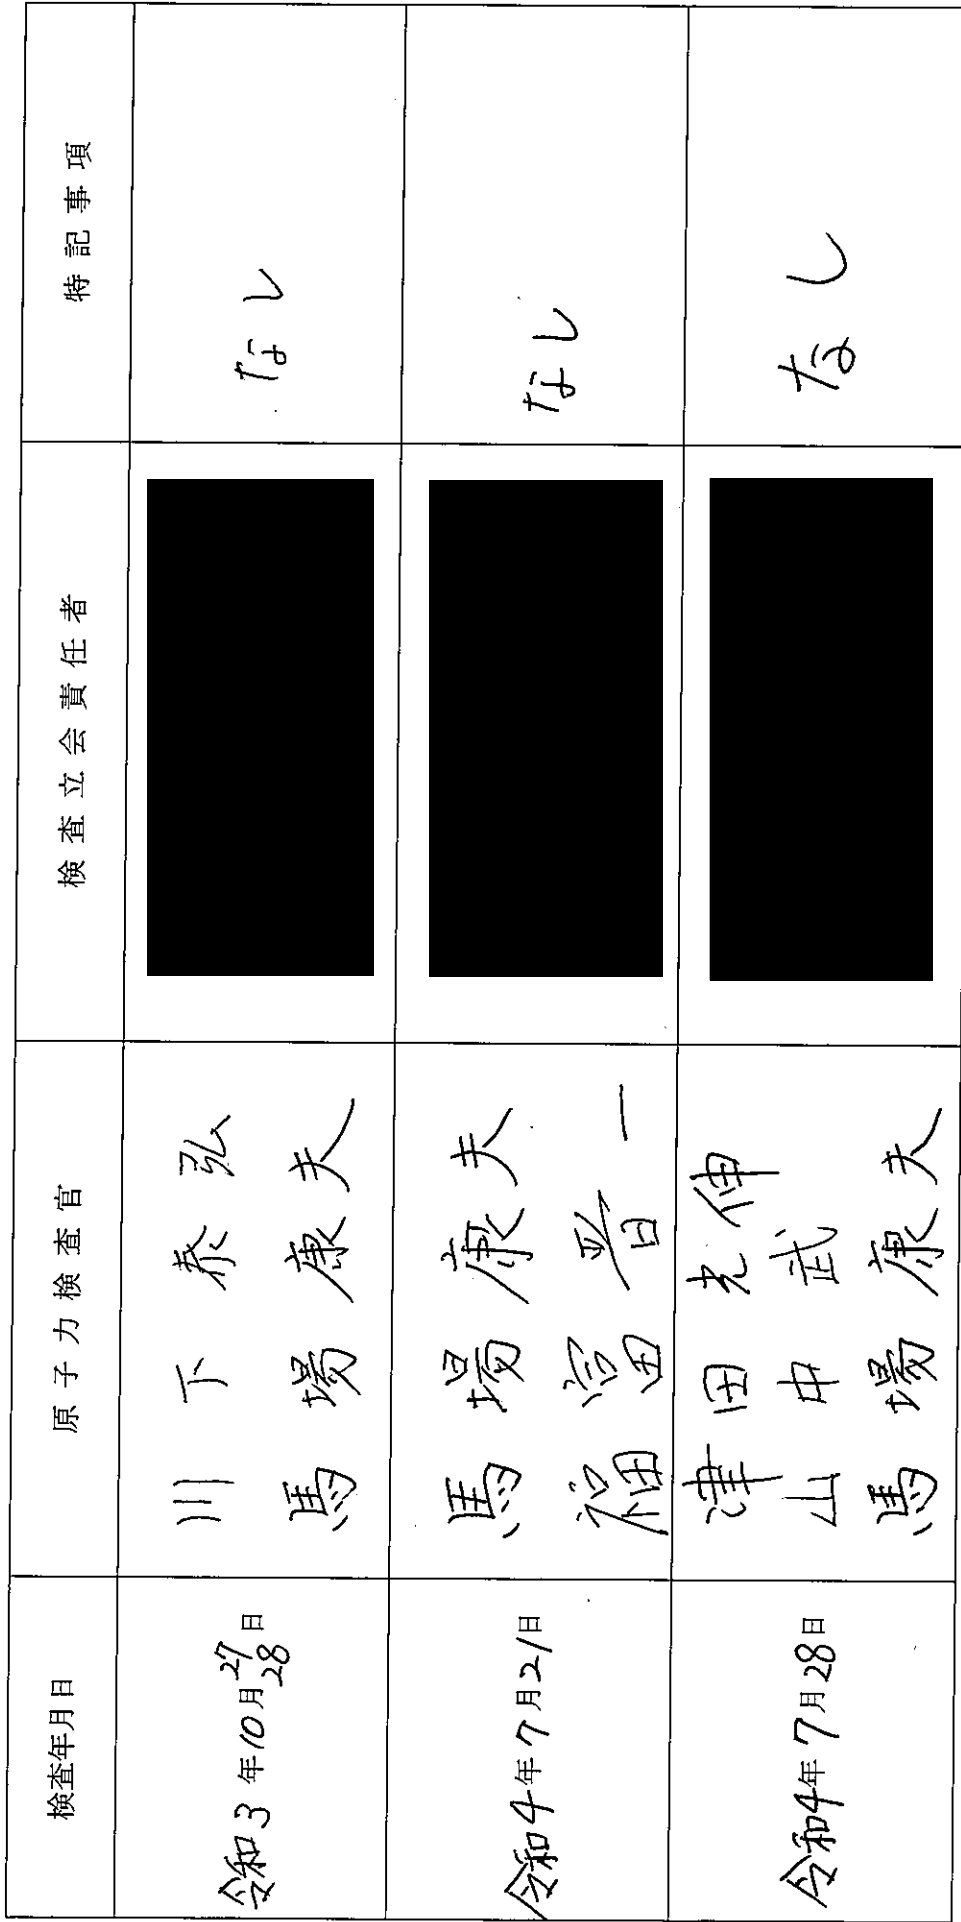 検査年月日 原子力検査官 検査立会責任者 特記事項
令和3年10月27日
28
川下泰弘
馬場康夫
なし
令和4年7月21日
馬場康夫
福富晋一
なし
令和4年7月28日
津田光伸
山中武
馬場康夫
なし